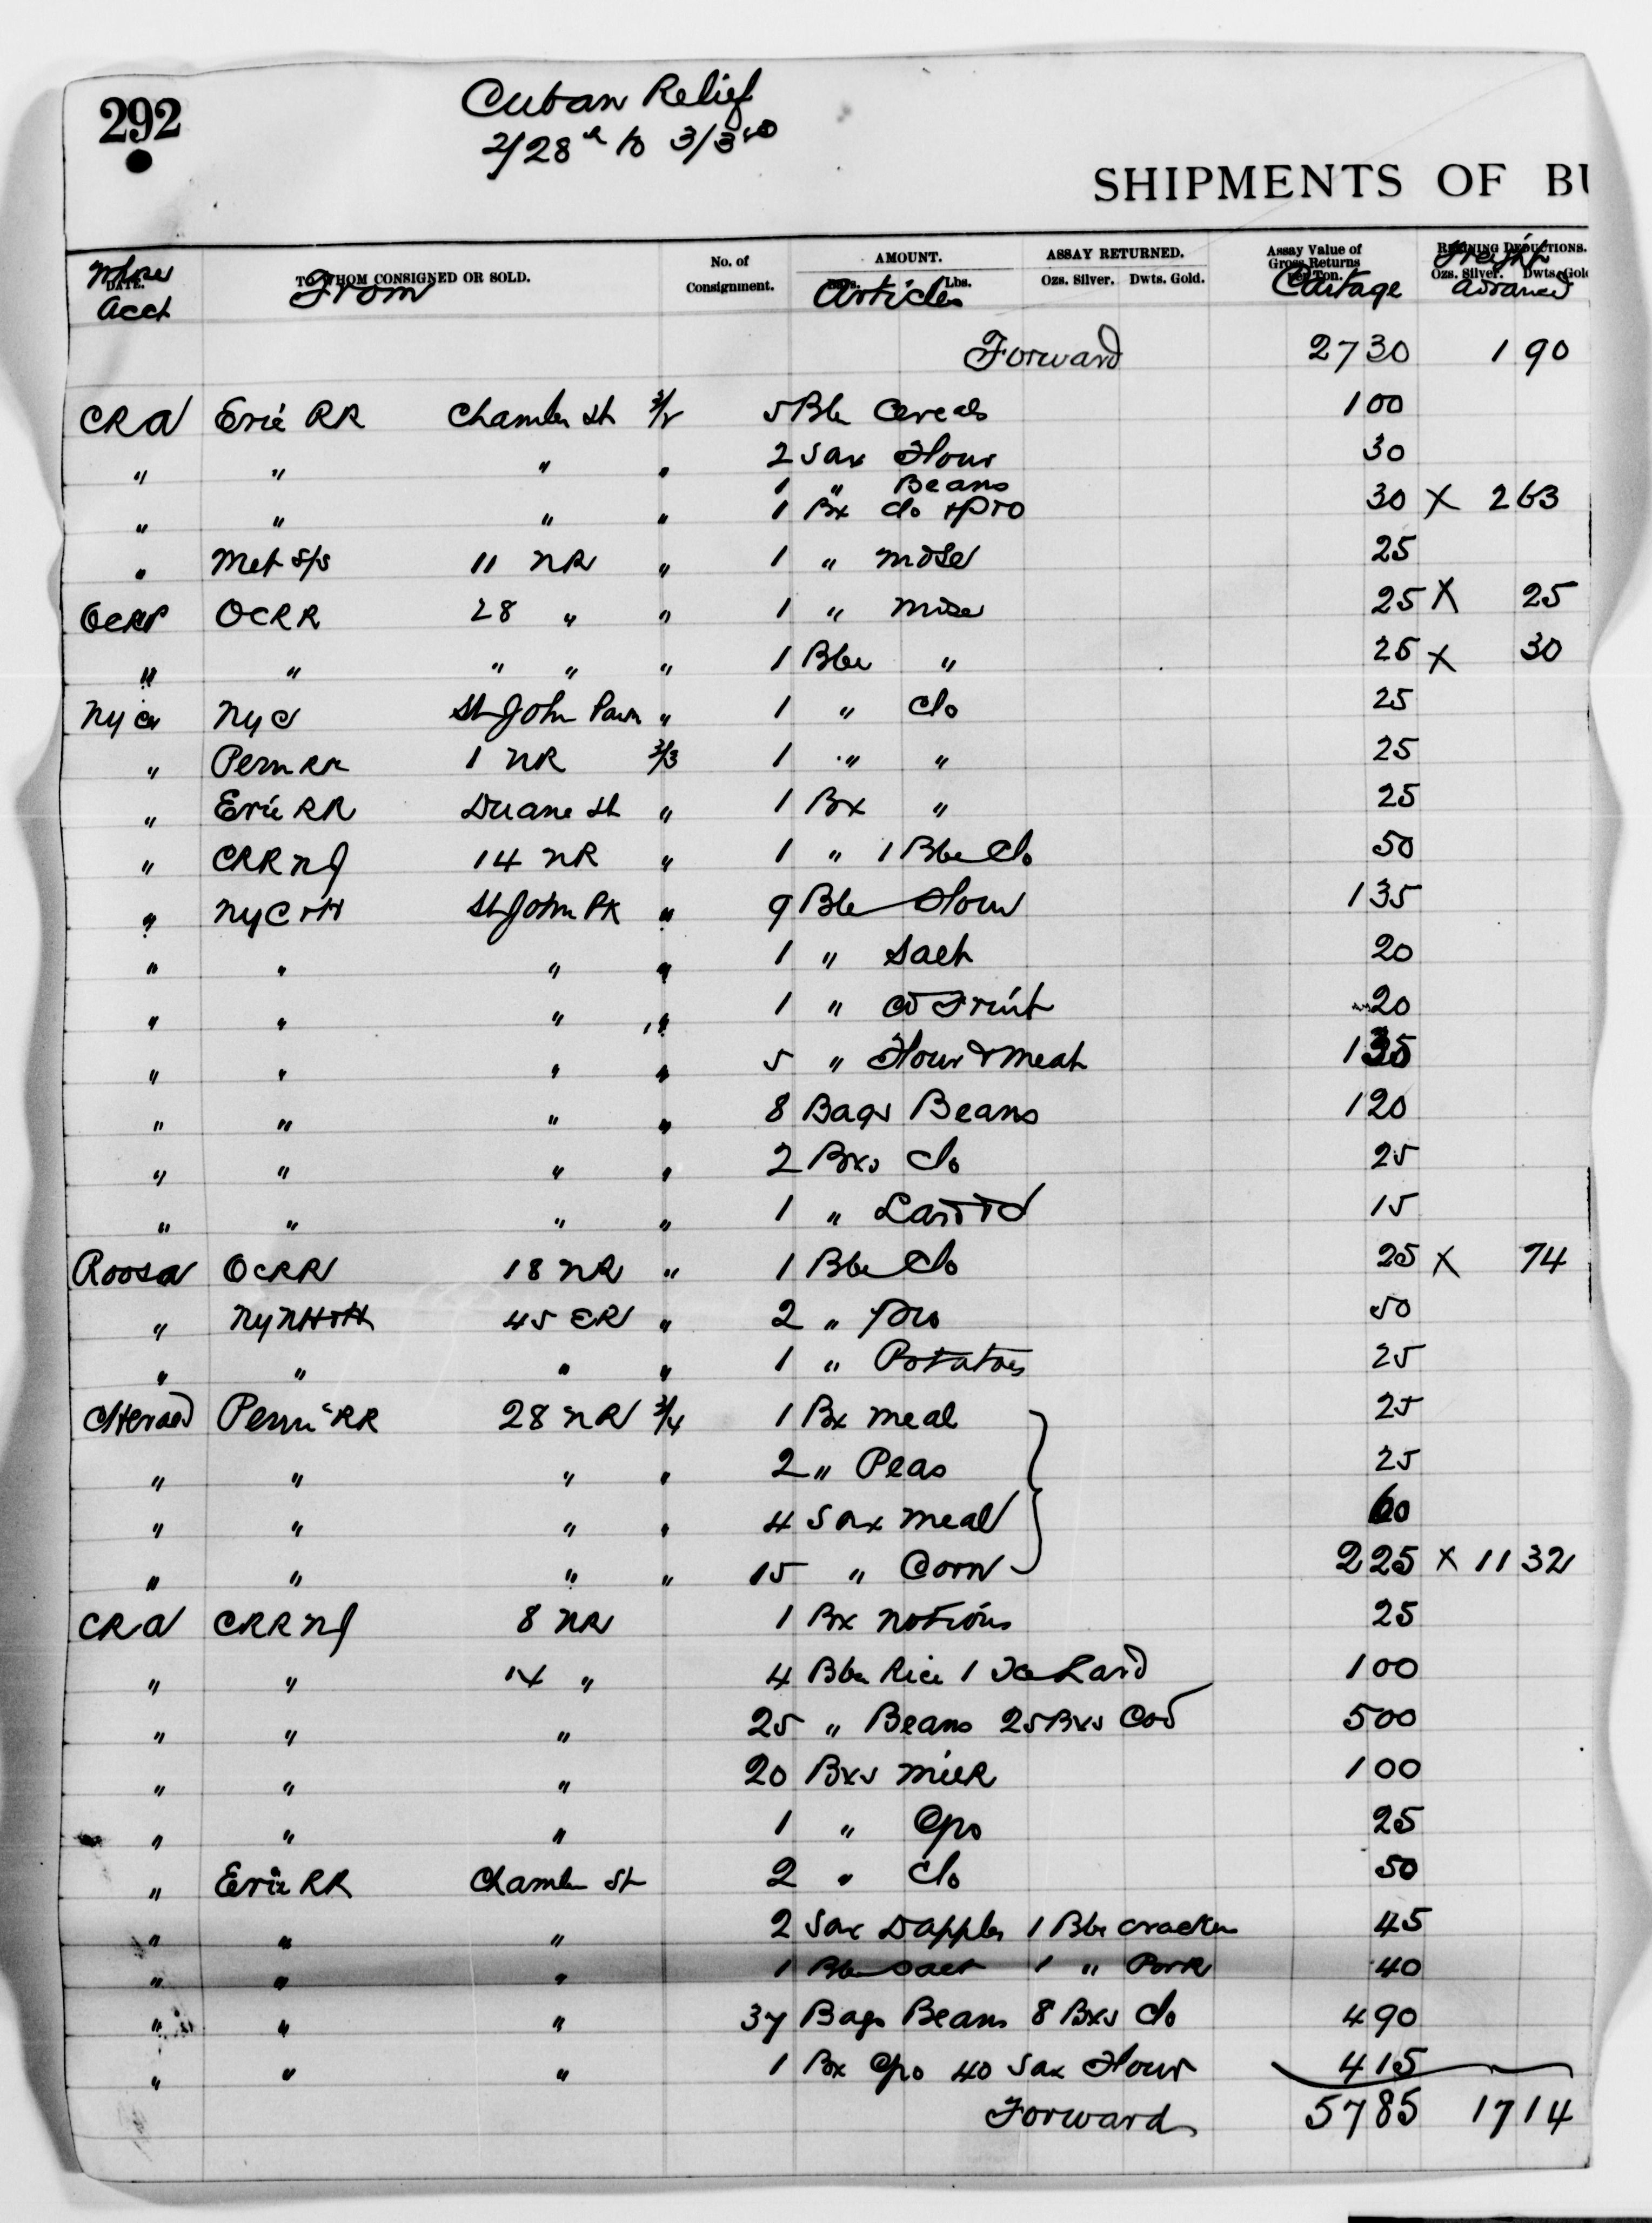 292
Cuban Relief
2/28th to 3/3rd
SHIPMENTS OF BU
DATE. TO WHOM CONSIGNED OR SOLD. No. of Consignment. AMOUNT. Lbs. ASSAY RETURNED. Ozs. Silver. Dwts. Gold. Assay Value of Gross Returns Per Ton. REFINING DEDUCTIONS. Ozs. Silver. Dwts. Gold
Whose Acct From Articles Cartage Freight Advanced
Forward 27 30 1 90
CRA Erie RR Chamber St 5 Bbl Cereals 1 00
" " " " 2 Sax Flour 30
1 " Beans
" " " " 1 Bx Clo + Pro 30 X 2 63
" Met S/S 11 NR " 1 " Mdse 25
OCRR 28 " " 1 " Mdse 25 X 25
" " " " " 1 Bbl " 25 X 30
NYC St John Park " 1 " Clo 25
" Penn RR 1 NR 3/3 1 " " 25
" Erie RR Duane St " 1 Bx " 25
" CRR NJ 14 NR " 1 " 1 Bbl Clo 50
" NYC+H St John Pk " 9 Bbl Flour 1 35
" " " " 1 " Salt 20
" " " " 1 " Cd Fruit 20
" " " " 5 " Flour & Meat 1 35
" " " " 8 Bags Beans 1 20
" " " " 2 Bxs Clo 25
" " " " 1 " 15
Roosa OCRR 18 NR " 1 Bbl Clo 25 X 74
" NYNH+H 45 ER " 2 " Pro 50
" " " " 1 " Potatoes 25
CHerald Penn RR 28 NR 3/4 1 Bx Meal 25
" " " " 2 " Peas 25
" " " " 4 Sax Meal 60
" " " " 15 " Corn 2 25 X 11 32
CRA CRR NJ 8 NR 1 Bx Notions 25
" " 14 " 4 Bbl Rice 1 Tce Lard 1 00
" " " 25 " Beans 25 Bxs Cod 5 00
" " " 20 Bxs Milk 1 00
" " " 1 " Gro 25
" Erie RR Chamber St 2 " Clo 50
" " " 2 Sax D Apples 1 Bbl Cracker 45
" " " 1 Bbl Salt 1 " Pork 40
" " " 37 Bags Beans 8 Bxs Clo 4 90
" " " 1 Bx Gro 40 Sax Flour 4 15
Forward 57 85 17 14